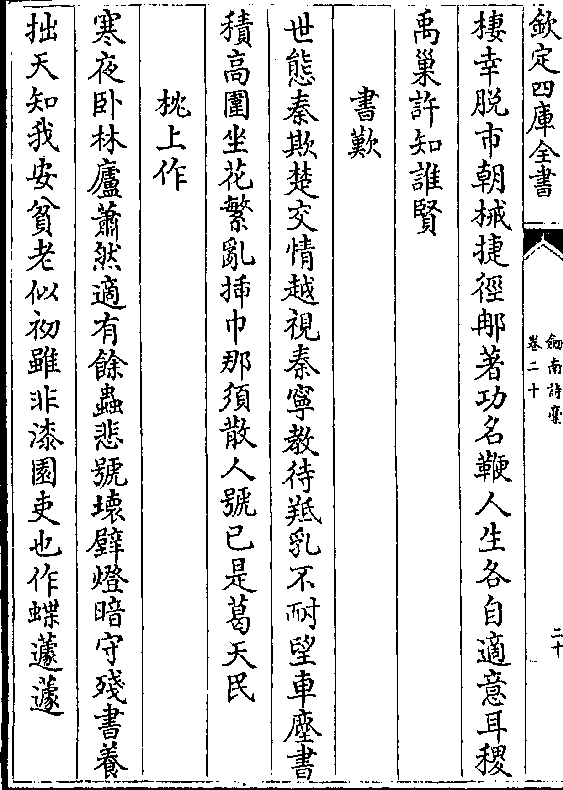 欽定四庫全書
劍南詩藁
卷二十
二十
棲幸脱市朝械捷徑郍著功名鞭人生各自適意耳稷
禹巢許知誰賢
書歎
世態秦欺楚交情越視秦寧教待羝乳不耐望車塵書
積高圍坐花繁亂揷巾那須散人號已是葛天民
枕上作
寒夜卧林廬蕭然適有餘蟲悲號壊壁燈暗守殘書養
拙天知我安貧老似初雖非漆園吏也作蝶蘧蘧